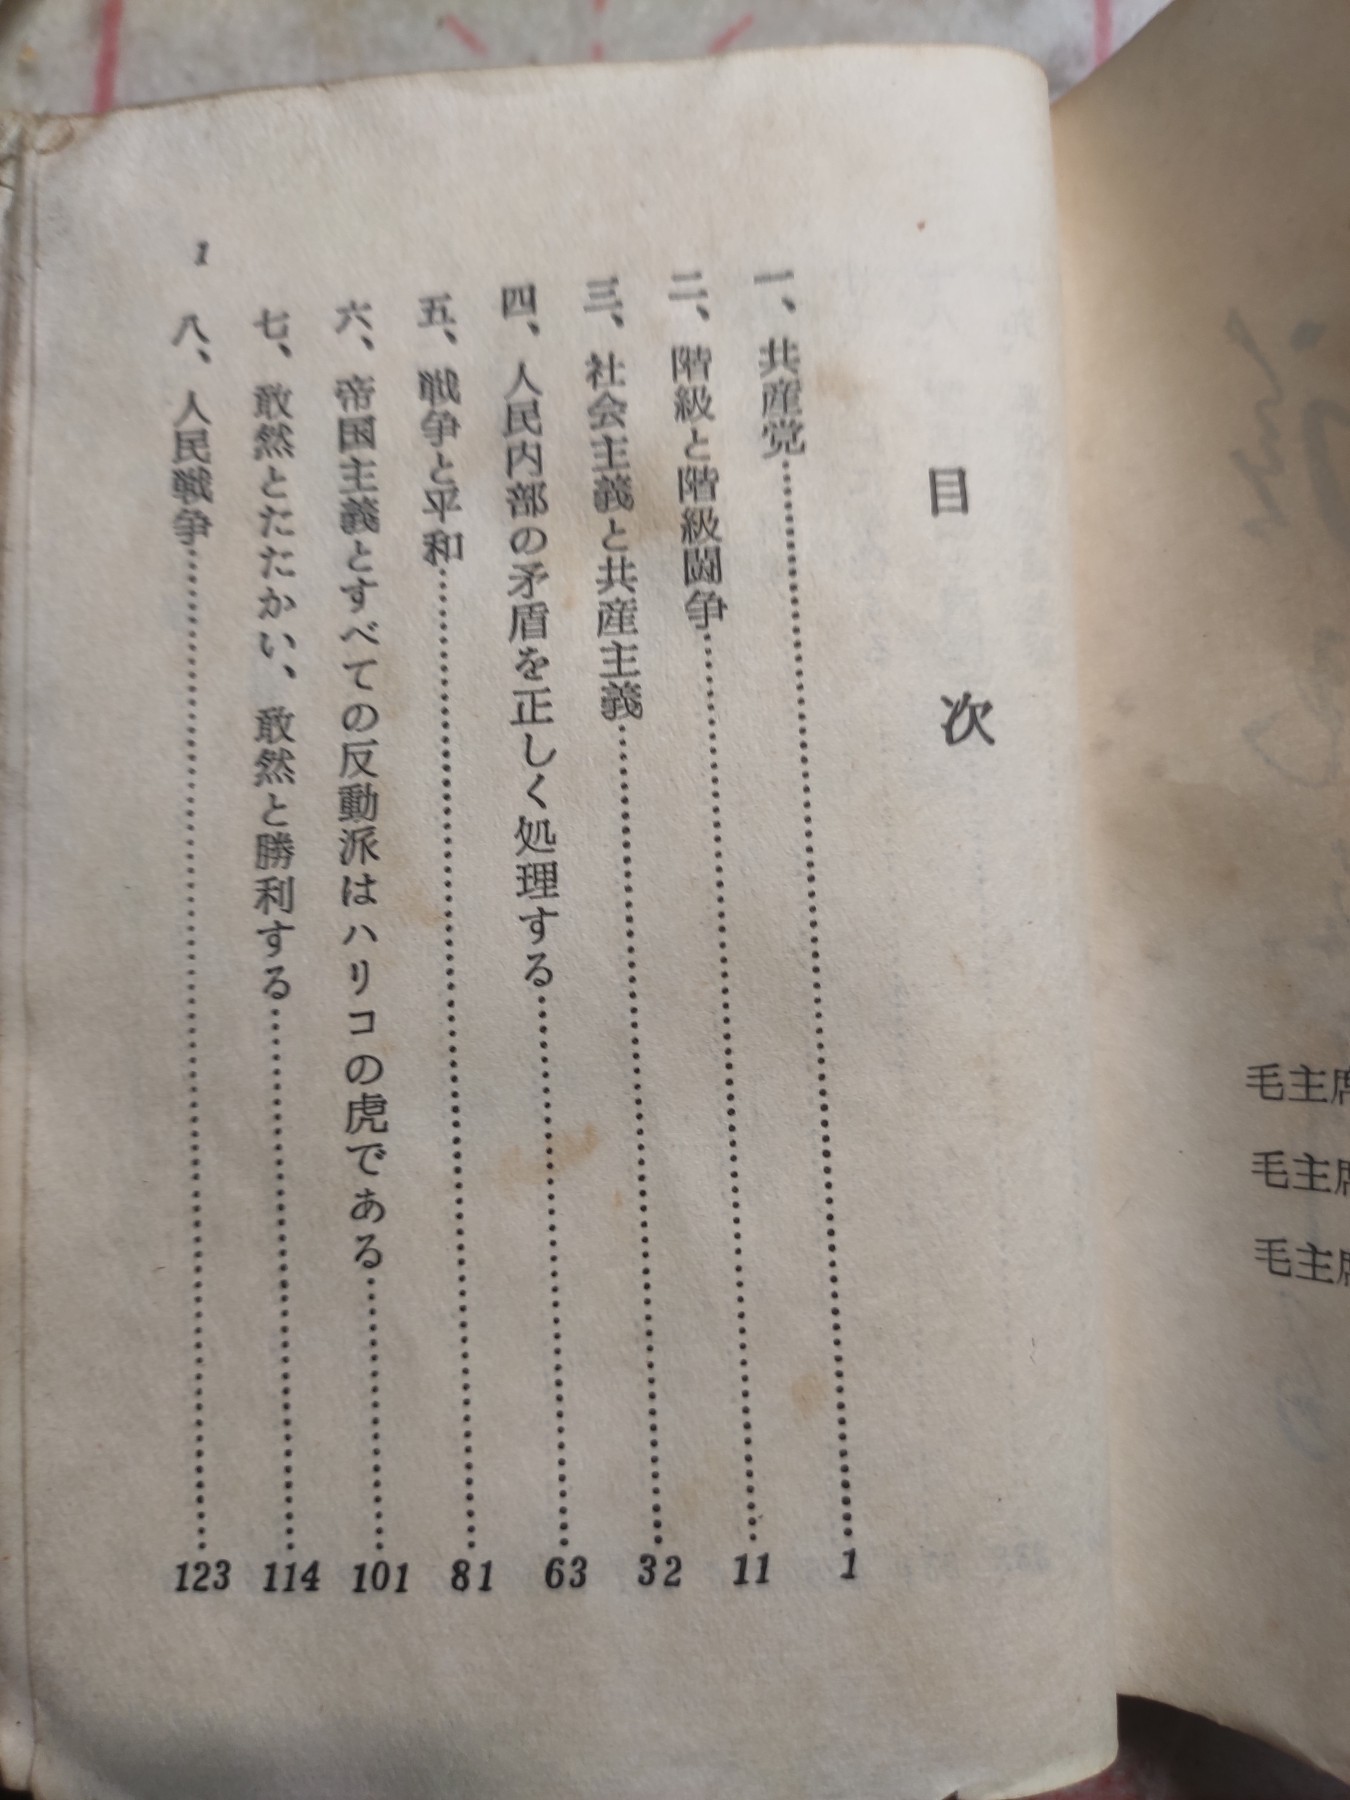 目次
一、共産党……1
二、階級と階級闘争……11
三、社会主義と共産主義……32
四、人民内部の矛盾を正しく処理する……63
五、戦争と平和……81
六、帝国主義とすべての反動派はハリコの虎である……101
七、敢然とたたかい、敢然と勝利する……114
八、人民戦争……123
1
毛主席
毛主席
毛主席